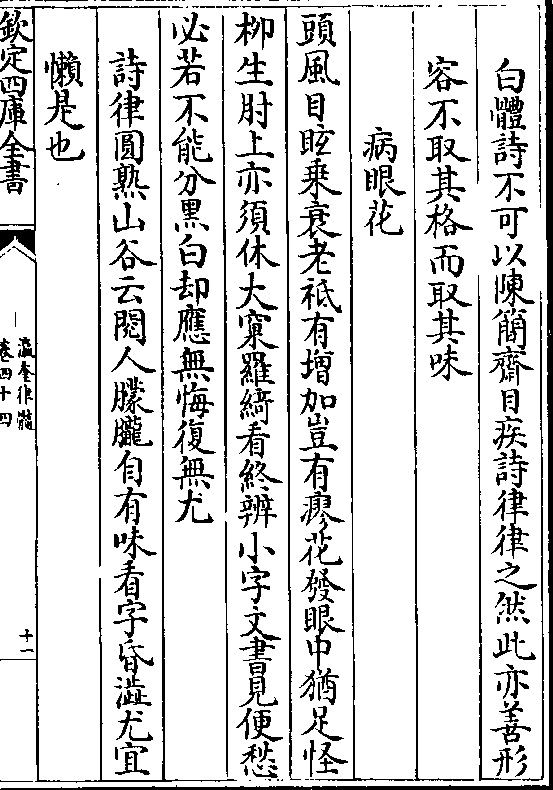 白體詩不可以陳簡齋目疾詩律律之然此亦善形
容不取其格而取其味
病眼花
頭風目眩乗衰老祗有增加豈有瘳花發眼中猶足怪
柳生肘上亦須休大窠羅綺看終辨小字文書見便愁
必若不能分黑白却應無悔復無尤
詩律圓熟山谷云閱人朦朧自有味看字昏澁尤宜
懶是也
欽定四庫全書
瀛奎律髓
卷四十四
十一